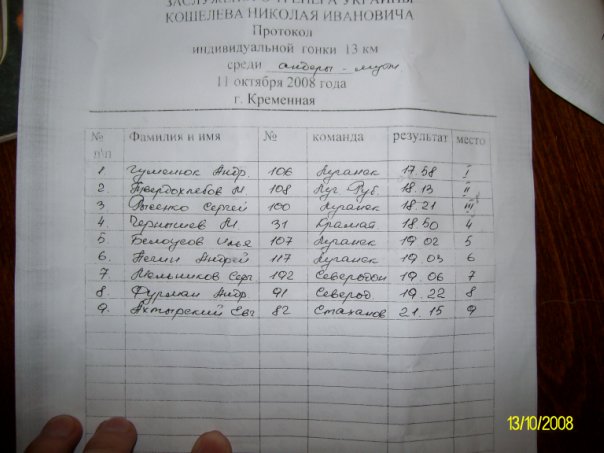 ЗАСЛУЖЕНОГО ТРЕНЕРА УКРАИНЫ
КОШЕЛЕВА НИКОЛАЯ ИВАНОВИЧА
Протокол
индивидуальной гонки 13 км
среди андеры - муж
11 октября 2008 года
г. Кременная
№ п\п Фамилия и имя № команда результат место
1 Гуменюк Андр. 106 Луганск 17.58 I
2. Твердохлебов М 108 Луг Руб. 18.13 II
3 Сергей 100 Луганск 18.21 III
4. Чернышев М. 31 Крамат 18.50 4
5. Белоусов Илья 107 Луганск 19.02 5
6. Андрей 117 Луганск 19.03 6
7. Мельников Серг 192 Северодон 19.06 7
8. Фурман Андр. 91 Северод 19.22 8
9. Ахтырский Евг 82 Стаханов 21.15 9
13/10/2008